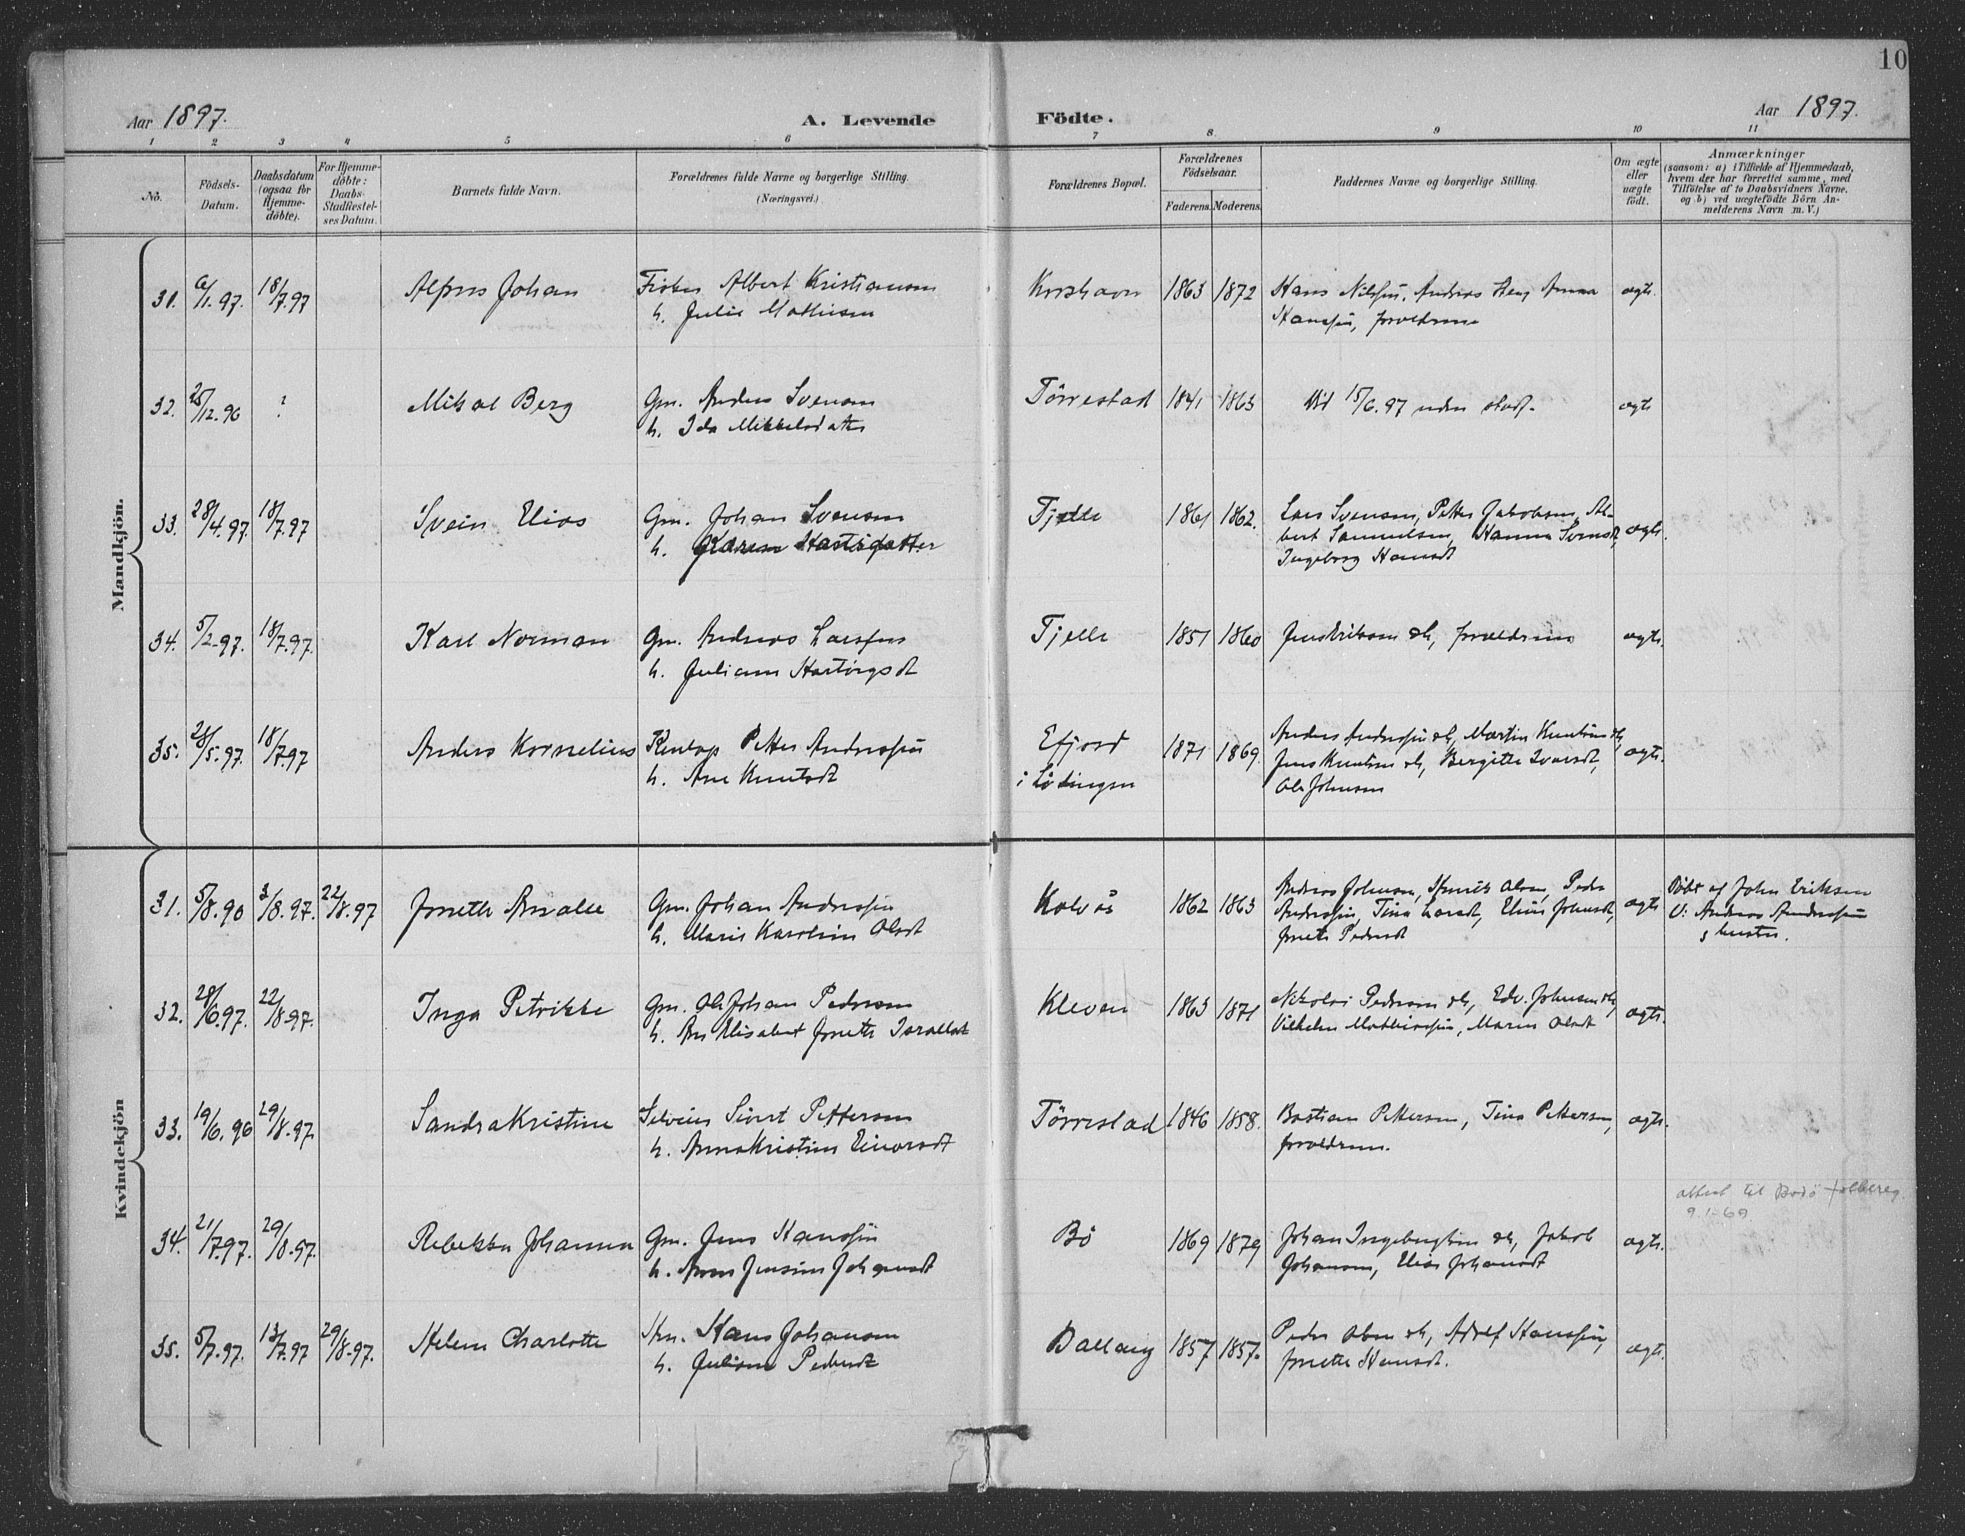 10
Aar 1897.
A. Levende Födte.
Aar 1897.
1 2 3 4 5 6 7 8. 9 10 11
No.
Födsels-Datum.
Daabsdatum (ogsaa for Hjemme-döbte).
For Hjemme-döbte: Daabs-Stadfæstel-ses Datum.
Barnets fulde Navn.
Forældrenes fulde Navne og borgerlige Stilling. (Næringsvei.)
Forældrenes Bopæl.
Forældrenes Födselsaar.
Faderens. Moderens.
Faddernes Navne og borgerlige Stilling.
Om ægte eller uægte födt.
Anmærkninger
(saasom: a) i Tilfælde af Hjemmedaab, hvem der har forrettet samme, med Tilföielse af to Daabsvidners Navne, og b) ved uægtefödte Börn An-melderens Navn m. V.)
Mandkjön.
31. 6/1.97. 18/7.97 Johan Fisker Albert Kristiansen 1863 1872 Hans Andreas Anna ægte.
h. Julie Mathisen
32. 25/12.96 ? Mikal Berg Gm. Anders Svensen Törrestad 1841 1863 15/6.97 uden daab. ægte
h. Ida Mikkelsdatter
33. 28/4.97. 18/7.97 Svein Elias Gm. Johan Svensen Fjelle 1861 1862. Lars Svensen, Petter Jakobsen, Al-
bert Samuelsen, Hanna Svensd, ægte.
h. Karen Hartvigdatter
Ingeborg Hansdt
34. 5/2-97. 18/7.97. Karl Norman Gm. Andreas Larssen Fjelle 1851 1860 Jens Eriksen & h, forældrene ægte.
h. Juliane Hartvigsdt
35. 28/5.97. 18/7.97 Anders Kornelius Petter Andreassen Efjord 1871 1869. Anders Andreassen & h, Martin Knutsen & h,
Jens Knutsen & h, Bergitte Ivarsdt, ægte.
h. Ane Knutsdt i Lödingen
Ole Johnsen
Kvindekjön
31. 5/8.96 3/8.97. 22/8.97 Gm. Johan Andreassen 1862 1863 Andreas Johnsen, Henrik Olsen, Peder
Andreassen, Tina Larsdt, Johnsdt, ægte Döbt af John Eriksen
V: Andreas Andreassen
h. Marie Karoline Olsdt
Jonette Pedersdt
g hustru.
32. 28/6.97. 22/8-97. Inga Petrikke Gm. Ole Johan Pedersen Kleven 1863 1871 Nikolai Pedersen & h, Edv. Johnsen & h, ægte.
h. Elisabet Jonette Israelsdt
Vilhelm Mathiassen, Maren Olsdt
33. 19/6.96 29/8.97. Sandra Kristine Sivert Pettersen Törrestad 1846 1858. Bastian Pettersen, Tina Pettersen, ægte.
h. Anna Kristine Einarsdt
forældrene.
attest til Bodö
9.1-69
34. 21/7.97. 29/8.97. Rebekka Johanna Gm. Jens Hanssen Bö 1869 1879 Johan Ingebrigtsen & h, Jakob ægte.
h. Anne Jensine Johansdt
Johansen, Johansdt
35. 5/7.97. 13/7.97 29/8.97. Helene Charlotte Hans Johansen Ballang 1857 1857. Peder Olsen & h, Adolf Hanssen, ægte.
h. Juliane Pedersdt
Jonette Hansdt.